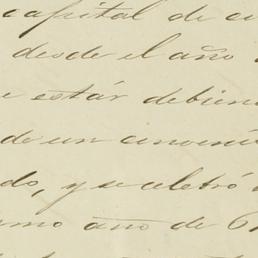 capital de
desde el año
e estár debien
de un conveni
do, y se eletró
smo año de